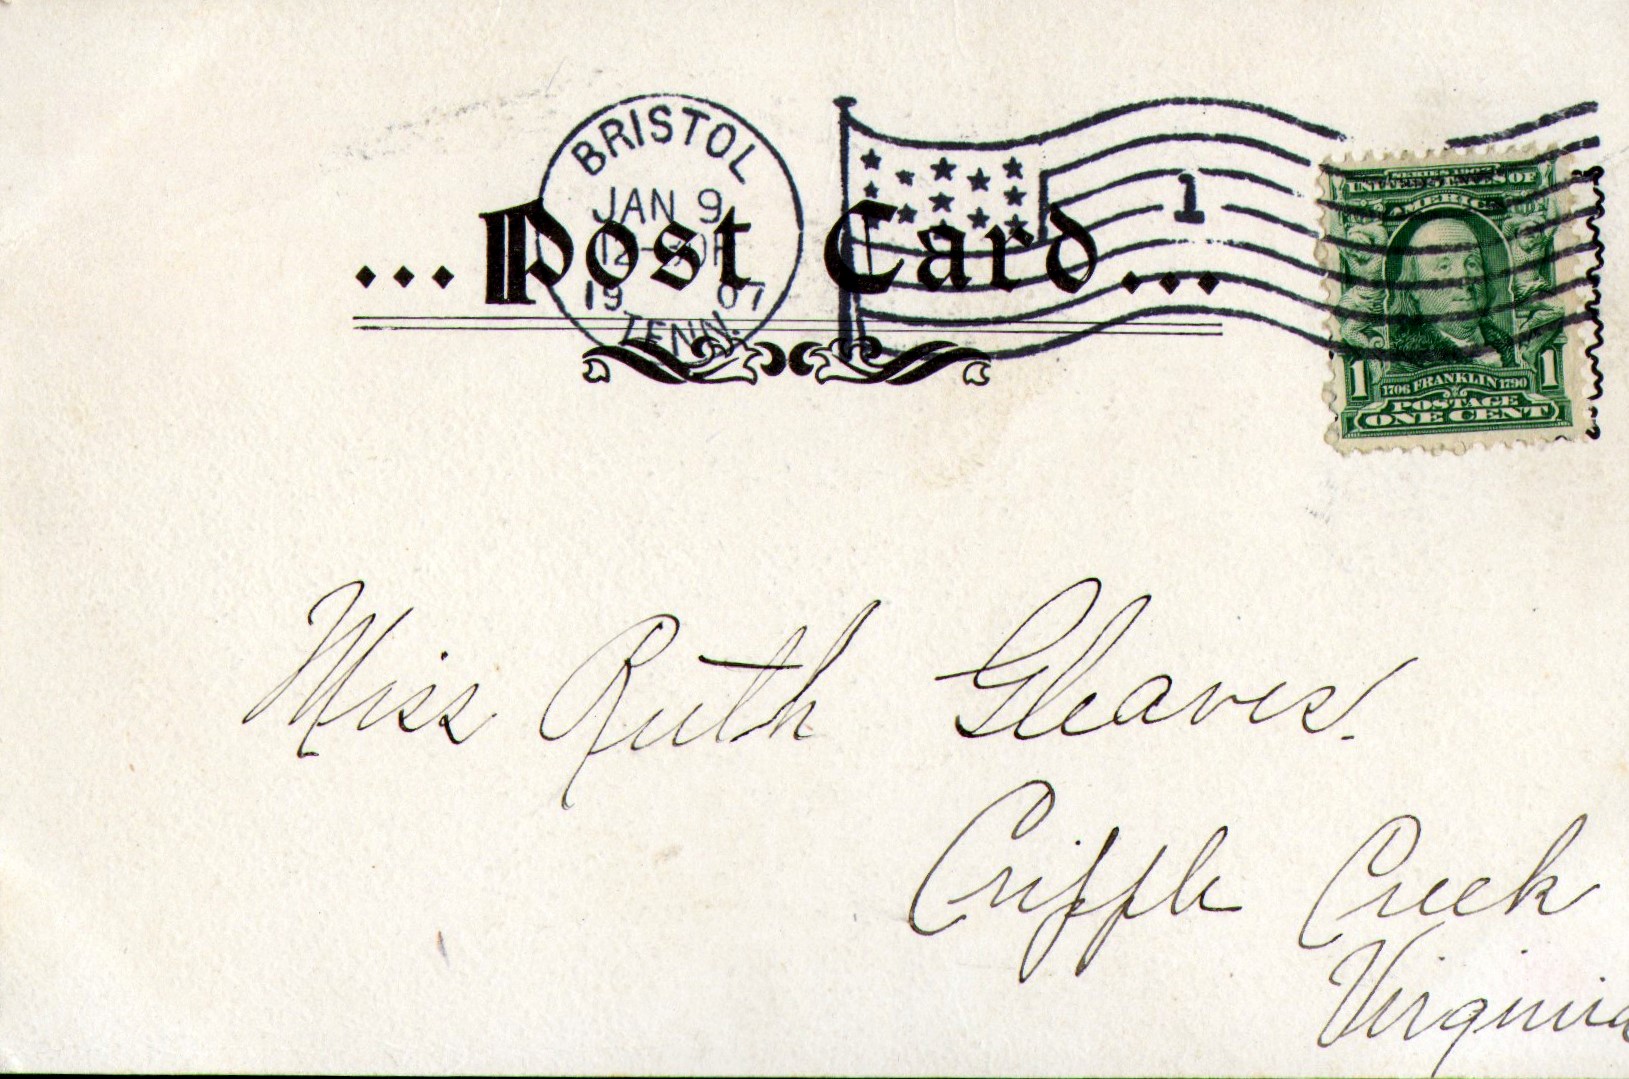 BRISTOL
JAN 9
19 07
TENN.
1
...Post Card...
SERIES 1902
UNITED STATES OF
AMERICA
1 1706 FRANKLIN 1790 1
POSTAGE
ONE CENT
Miss Ruth Gleaves.
Cripple Creek
Virginia